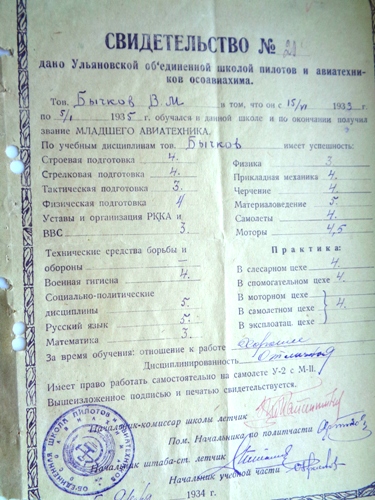 СВИДЕТЕЛЬСТВО № 21
дано Ульяновской об'единенной школой пилотов и авиатехни-
ков осоавиахима.
Тов. Бычков В.М в том, что он с 15/VI 1933 г.
по 5/I 1935 г. обучался в данной школе и по окончании получил
звание МЛАДШЕГО АВИАТЕХНИКА.
По учебным дисциплинам тов. Бычков имеет успешность:
Строевая подготовка 4.
Стрелковая подготовка 4.
Тактическая подготовка 3.
Физическая подготовка 4
Уставы и организация РККА и
ВВС 3.
Технические средства борьбы и
обороны —
Военная гигиена 4.
Социально-политические
дисциплины 5.
Русский язык 5.
Математика 3.
Физика 3.
Прикладная механика 4.
Черчение 4.
Материаловедение 5.
Самолеты 4.
Моторы 4,5
Практика:
В слесарном цехе 4.
В спомогательном цехе 4.
В моторном цехе
В самолетном цехе 4.
В эксплоатац. цехе
За время обучения: отношение к работе Хорошее
Дисциплинированность Отличная
Имеет право работать самостоятельно на самолете У-2 с М-11.
Вышеизложенное подписью и печатью свидетельствуется.
Начальник-комиссар школы летчик
Пом. Начальника по политчасти
Начальник штаба-ст. летчик
Начальник учебной части
1934 г.
ОБ'ЕДИНЕННАЯ ШКОЛА ПИЛОТОВ И АВИАТЕХНИКОВ